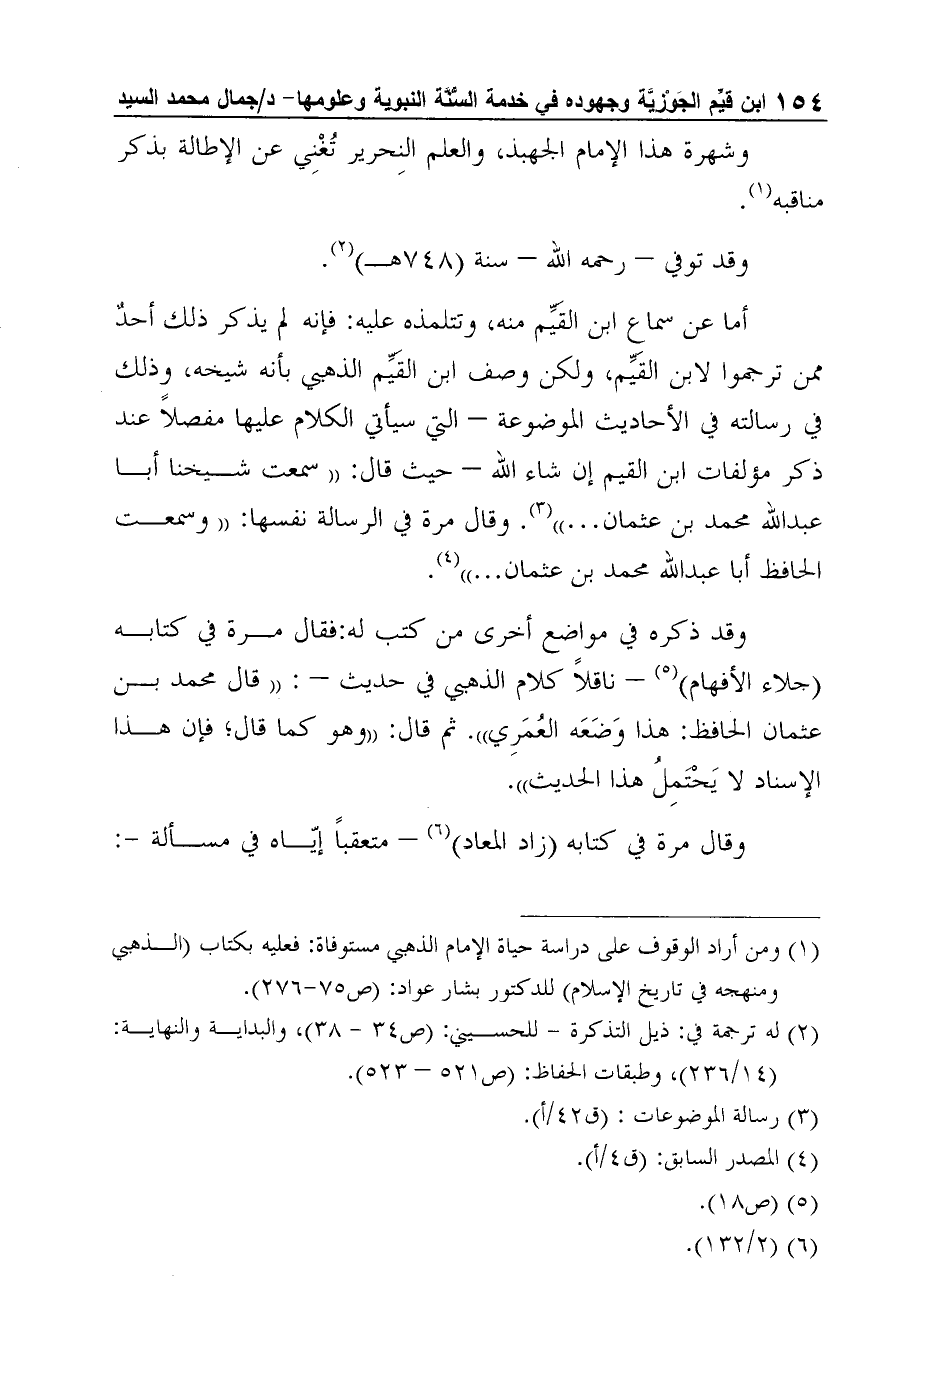 ١٥٤ ابن قيِّم الجَوْزيَّة وجهوده في خدمة السُّنَّة النبوية وعلومها- د/جمال محمد السيد
وشهرة هذا الإمام الجهبذ، والعلم النِحرير تُغْنِي عن الإطالة بذكر
مناقبه(١).
وقد توفي – رحمه الله – سنة (٧٤٨هـ)(٢).
أما عن سماع ابن القيِّم منه، وتتلمذه عليه: فإنه لم يذكر ذلك أحدٌ
ممن ترجموا لابن القيِّم، ولكن وصف ابن القيِّم الذهبي بأنه شيخه، وذلك
في رسالته في الأحاديث الموضوعة – التي سيأتي الكلام عليها مفصلاً عند
ذكر مؤلفات ابن القيم إن شاء الله – حيث قال: (( سمعت شيخنا أبا
عبدالله محمد بن عثمان...))(٣). وقال مرة في الرسالة نفسها: (( وسمعت
الحافظ أبا عبدالله محمد بن عثمان...))(٤).
وقد ذكره في مواضع أخرى من كتب له:فقال مرة في كتابه
(جلاء الأفهام)(٥) – ناقلاً كلام الذهبي في حديث – : (( قال محمد بن
عثمان الحافظ: هذا وَضَعَه العُمَرِي)). ثم قال: ((وهو كما قال؛ فإن هذا
الإسناد لا يَحْتَمِلُ هذا الحديث)).
وقال مرة في كتابه (زاد المعاد)(٦) – متعقباً إيّاه في مسألة –:
(١) ومن أراد الوقوف على دراسة حياة الإمام الذهبي مستوفاة: فعليه بكتاب (الذهبي
ومنهجه في تاريخ الإسلام) للدكتور بشار عواد: (ص٧٥-٢٧٦).
(٢) له ترجمة في: ذيل التذكرة – للحسيني: (ص٣٤ – ٣٨)، والبداية والنهاية:
(٢٣٦/١٤)، وطبقات الحفاظ: (ص٥٢١ – ٥٢٣).
(٣) رسالة الموضوعات : (ق٤٢/أ).
(٤) المصدر السابق: (ق٤/أ).
(٥) (ص١٨).
(٦) (١٣٢/٢).